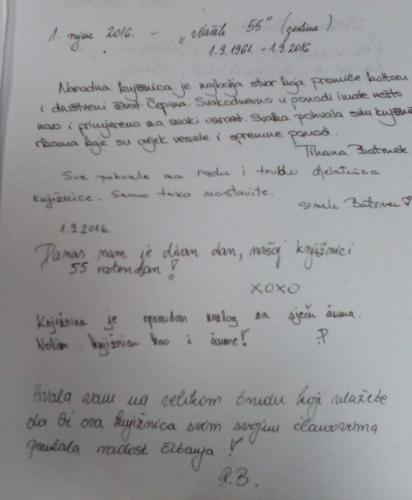 1. rujna 2016. - „Našeh 55" (godina)
1.9.1961. - 1.9.2016
Narodna knjižnica je najbolja stvar koja promiče kulturu
i društveni život Čepina. Svakodnevno u ponudi imate nešto
novo i primjereno za svaki uzrast. Svaka pohvala svim knjižni
čarkama koje su uvijek vesele i spremne pomoći.
Tihana
Sve pohvale na radu i trudu djelatnica
knjižnice. Samo tako nastavite.
1.9.2016.
Danas nam je divan dan, našoj knjižnici
55 rođendan!
XOXO
Knjižnica je opravdan razlog za sječu šuma.
Volim knjižnicu kao i šume! :P
Hvala vam na velikom trudu koji ulažete
da bi ova knjižnica svim svojim članovima
pružala radost čitanja!
R.B.